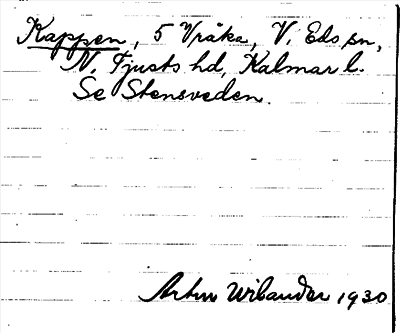 Kappen, 5 Vråka, V. Eds sn,
N. Tjusts hd, Kalmar l.
Se Stensveden.
Artur Wilander 1930